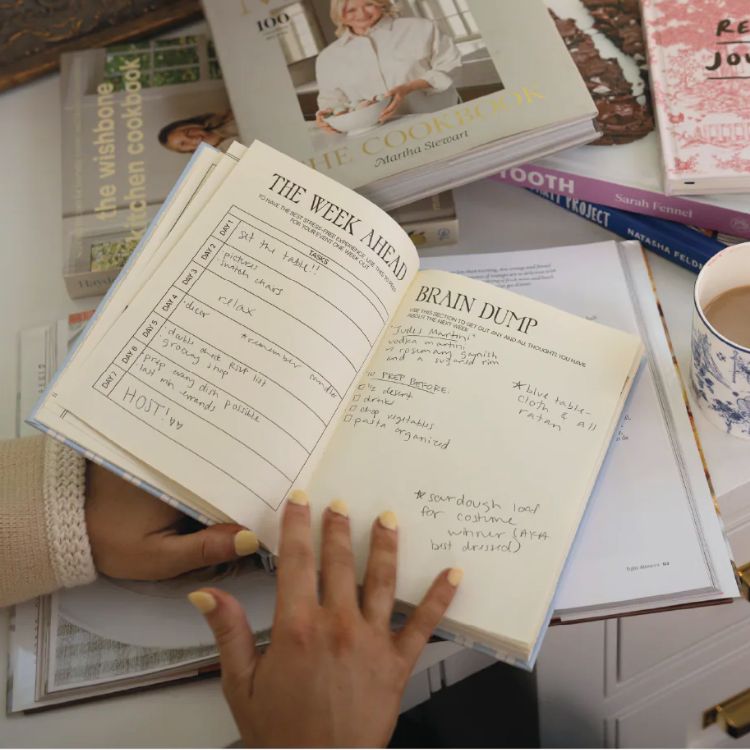 100
THE COOKBOOK
Martha Stewart
the wishbone
kitchen cookbook
TOOTH
Sarah Fennel
PROJECT
THE WEEK AHEAD
TO HAVE THE BEST STRESS-FREE EXPERIENCE, USE THIS TO PREP
FOR YOUR EVENT ONE WEEK OUT
TASKS
DAY 1
set the table!!
DAY 2
pictures
match chairs
DAY 3
relax
DAY 4
decor
*remember candles
DAY 5
double check RSVP list
grocery shop
DAY 6
prep every dish possible
last min errands
DAY 7
HOST!
BRAIN DUMP
USE THIS SECTION TO GET OUT ANY AND ALL THOUGHTS YOU HAVE
ABOUT THE NEXT WEEK
"Judes Martini"
vodka martini
rosemary garnish
and a sugared rim
PREP BEFORE:
desert
drinks
chop vegetables
pasta organized
*blue table-
cloth & all
ratan
*sourdough loaf
for costume
winner (AKA
best dressed)